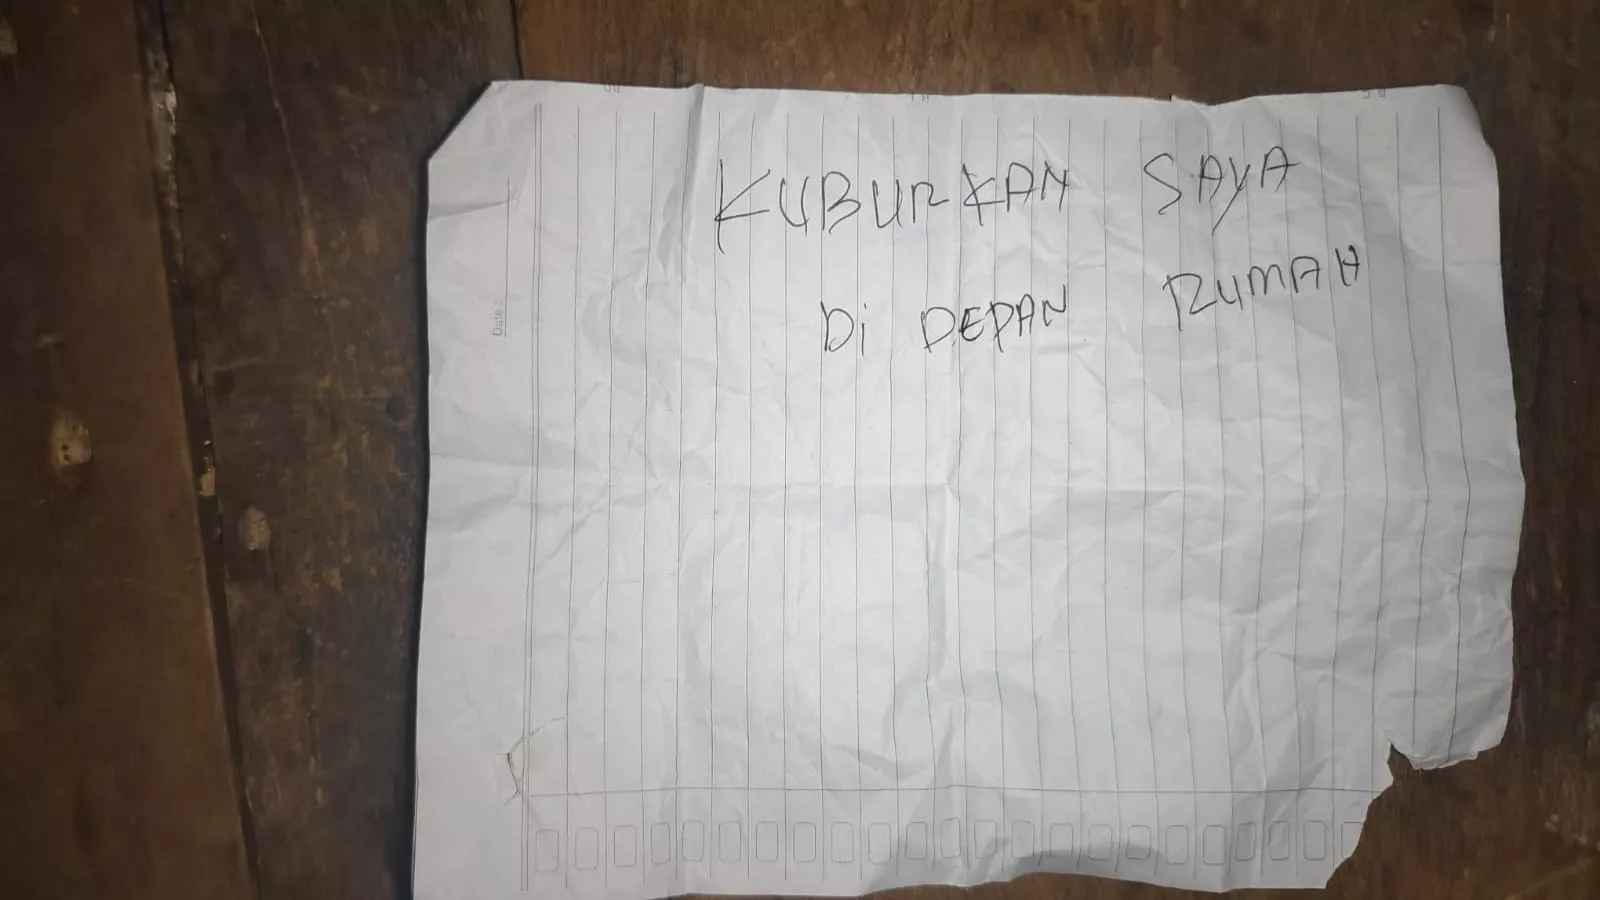 KUBURKAN SAYA
Di DEPAN RUMAH
Date :